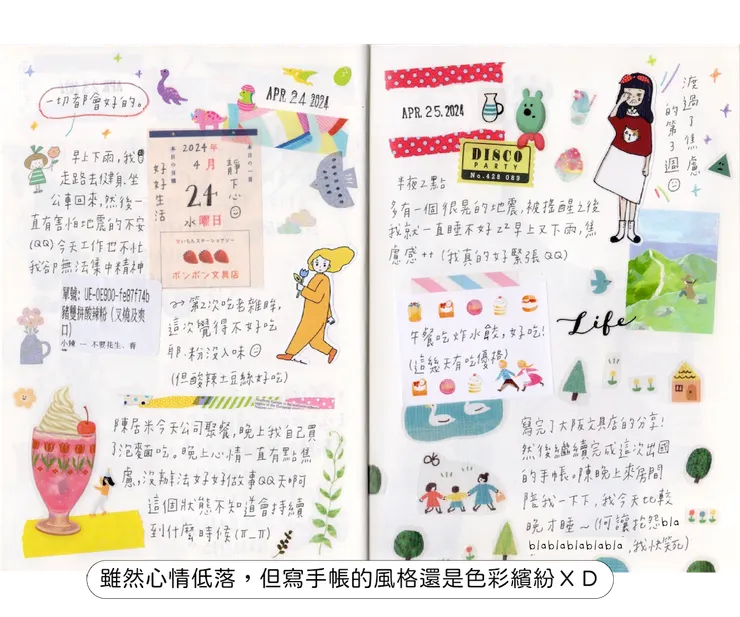 APR. 24 2024
一切都會好的。
早上下雨,我
走路去健身.坐
公車回來,然後一
直有害怕地震的不安
(QQ)今天工作也不忙
我卻無法集中精神
單號: UE-0E900-fe87f74b
豬雙拼酸辣粉(叉燒及爽
口)
小辣 — 不要花生、香
本日の日曜
本日の一言
2024年
4月
24
水曜日
好好生活
靜下心
ちいちんステーショナリー
ボンボン文具店
第2次吃老雜眸,
這次覺得不好吃
耶.粉沒入味
(但酸辣土豆絲好吃)
陳居米今天公司聚餐,晚上我自己買
了泡麵吃。晚上心情一直有點焦
慮,沒辦法好好做事QQ天啊
這個狀態不知道會持續
到什麼時候(π_π)
APR. 25. 2024
DISCO
PARTY
No.428 089
渡過了焦慮的第3週
半夜2點
多有一個很晃的地震,被搖醒之後
我就一直睡不好ZZ早上又下雨,焦
慮感++(我真的好緊張QQ)
Life
午餐吃炸水餃,好吃!
(這幾天有吃優格)
寫完了大阪文具店的分享!
然後繼續完成這次出國
的手帳.陳晚上來房間
陪我一下下,我今天比較
晚才睡~(何讓抱怨bla
blablablablabla,我快笑死)
雖然心情低落,但寫手帳的風格還是色彩繽紛XD